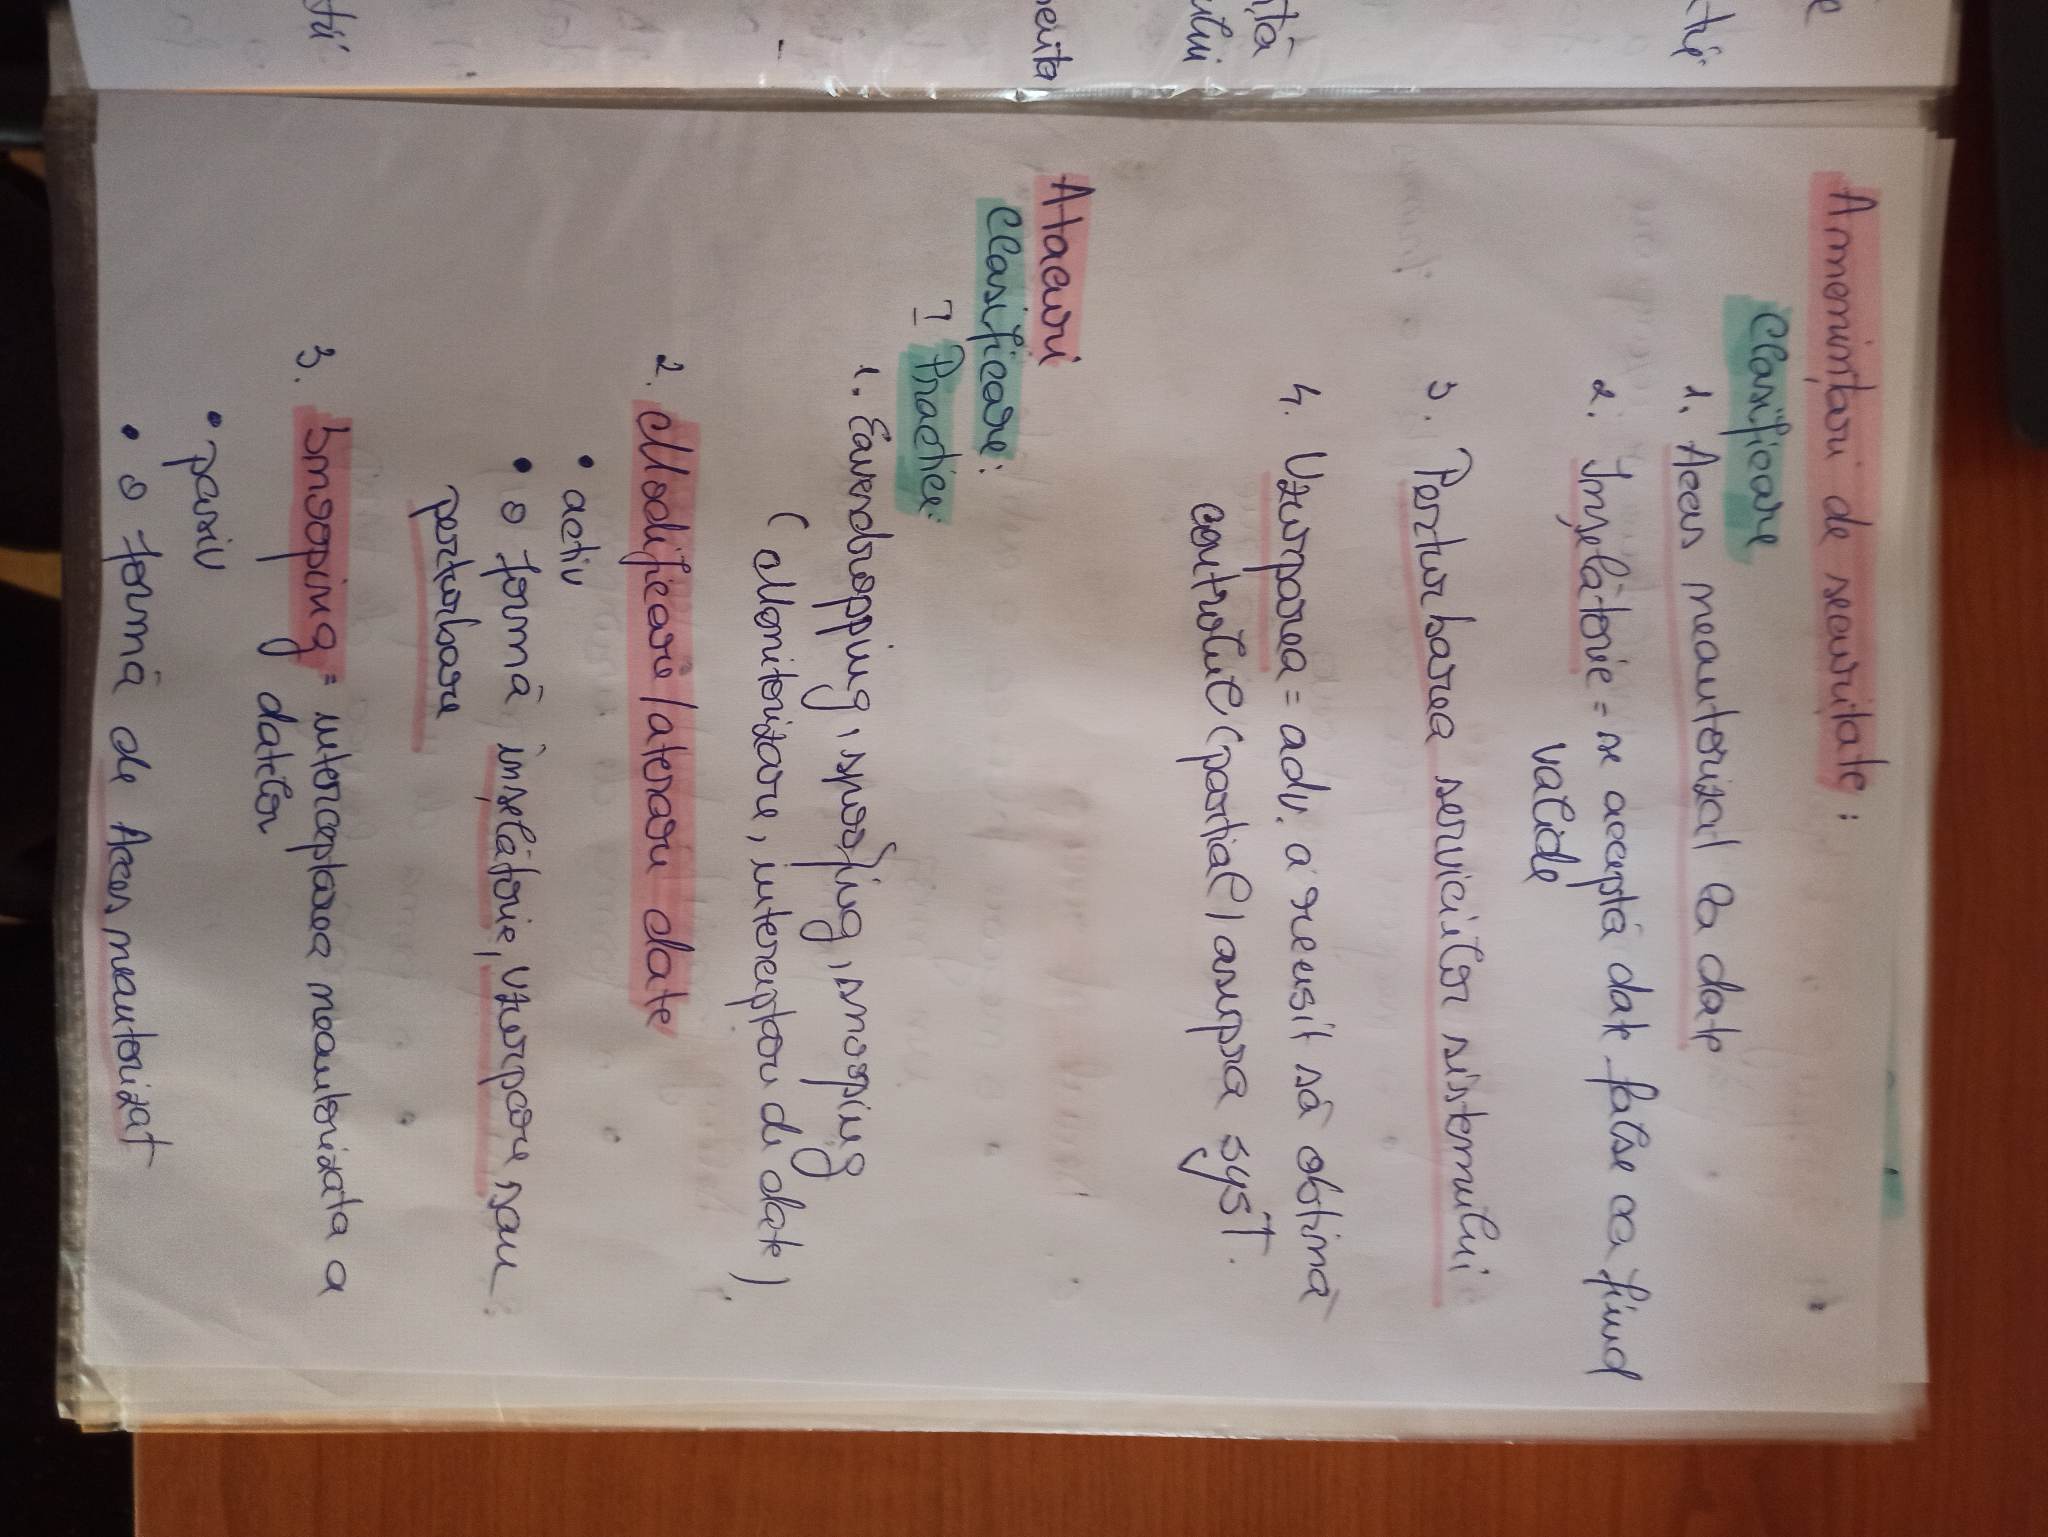 Amenințări de securitate:
Clasificare
1. Acces neautorizat la date
2. Înșelătorie = se acceptă date false ca fiind
valide
3. Perturbarea serviciilor sistemului
4. Uzurparea = adv. a reusit să obtină
controlul (partial) asupra syst.
Atacuri
Clasificare:
I Practice:
1. Eavendropping, spoofing, snooping
(Monitorizare, interceptare de date)
2. Modificare/aterari date
• activ
• o formă înșelătorie, uzurpare sau
perturbare
3. Snooping = interceptarea neautorizata a
datelor
• pasiv
• o formă de Acces neautorizat